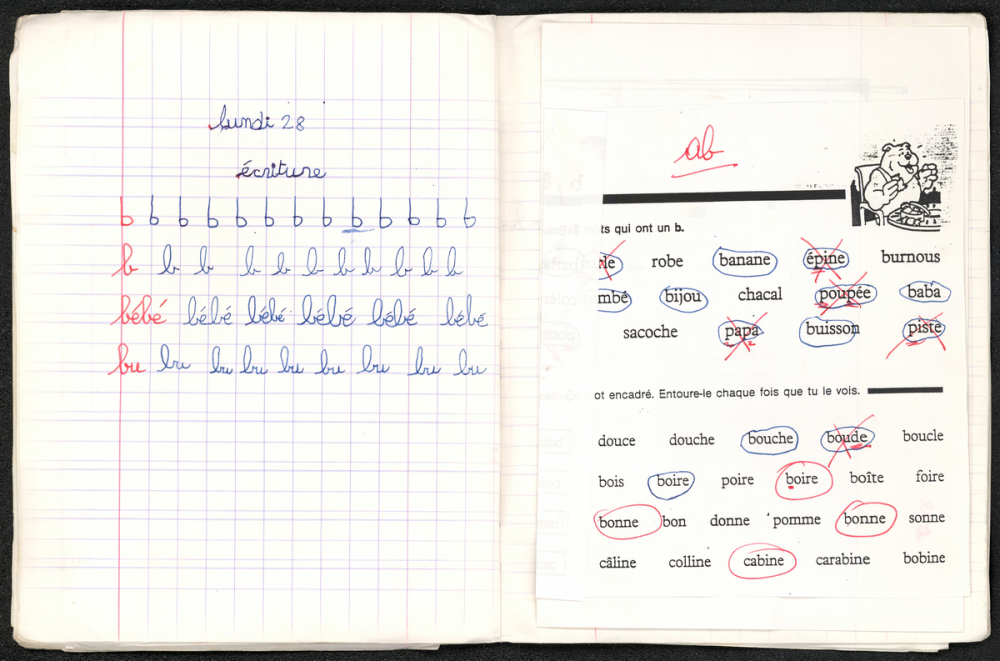 lundi 28
écriture
b b b b b b b b b b b b
b b b b b b b b b b b
bébé bébé bébé bébé bébé bébé
bu bu bu bu bu bu bu bu bu
ab
ts qui ont un b.
le robe banane épine burnous
mbé bijou chacal poupée baba
sacoche papa buisson piste
ot encadré. Entoure-le chaque fois que tu le vois.
douce douche bouche boude boucle
bois boire poire boire boîte foire
bonne bon donne pomme bonne sonne
câline colline cabine carabine bobine